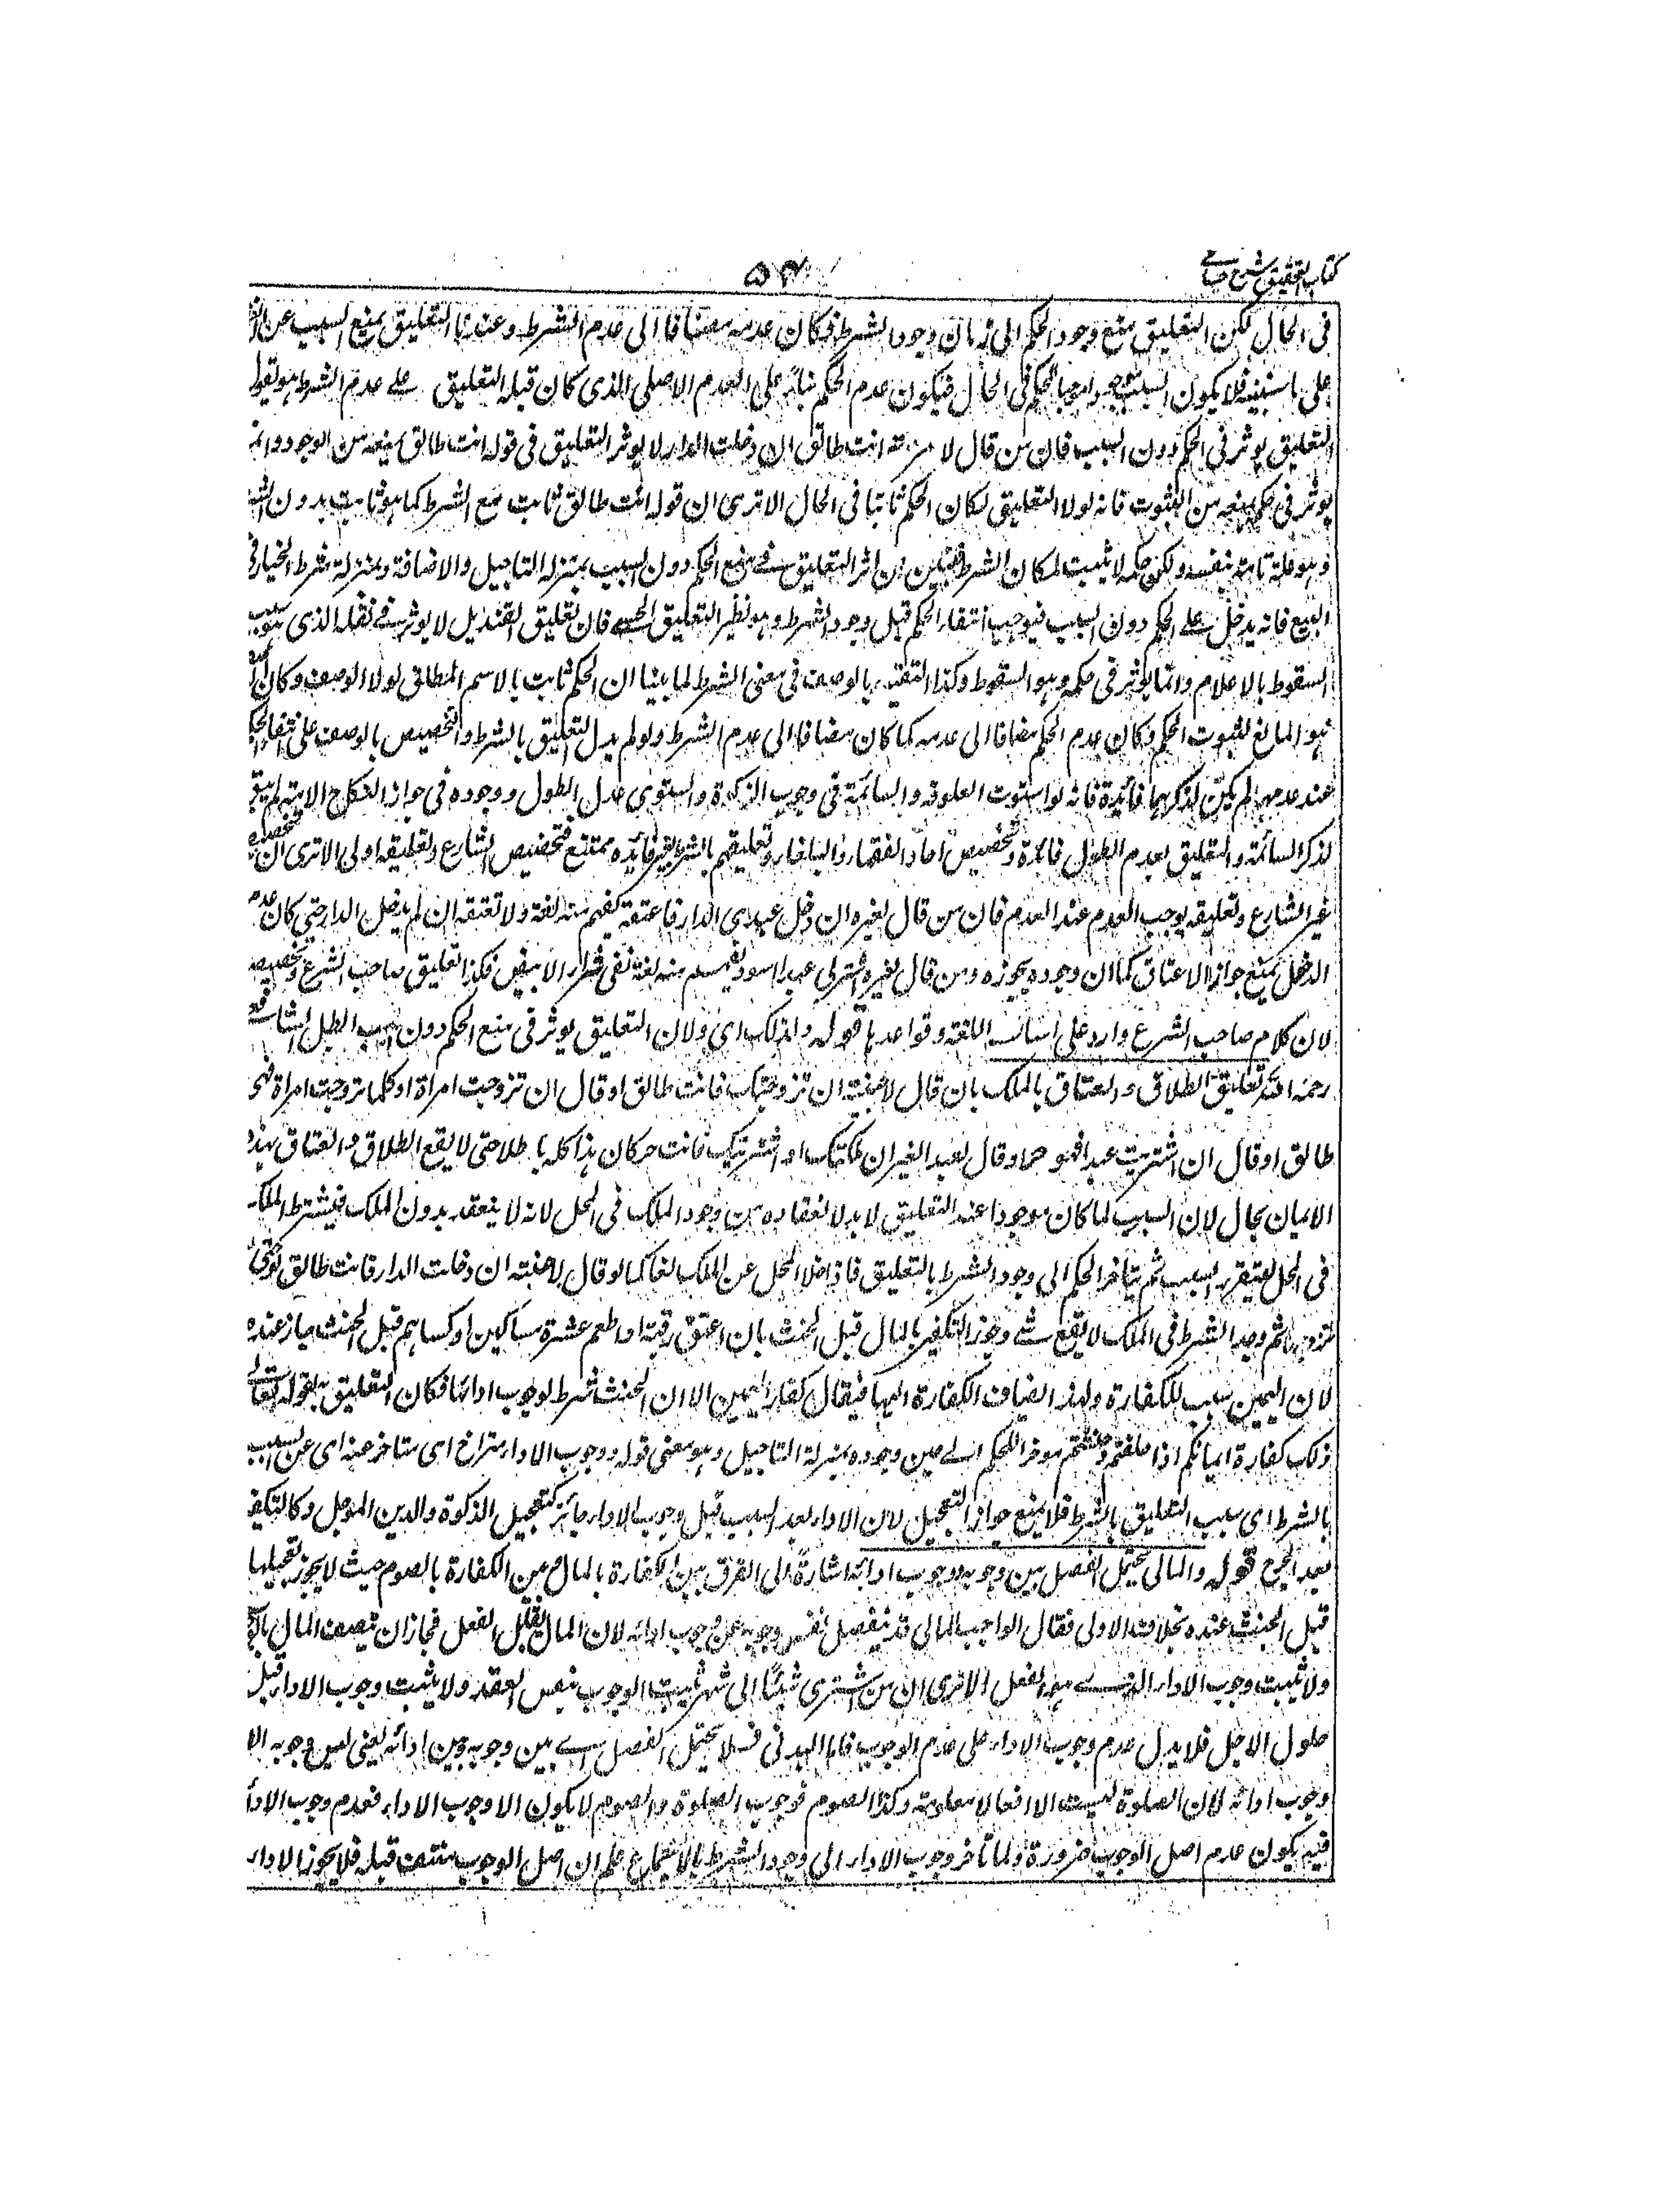 كتاب التحقيق شرح حسامى
٥٤
فى الحال لكن التعليق منع وجود الحكم الى زمان وجود الشرط فكان عدمه مضافا الى عدم الشرط وعندنا التعليق يمنع السبب عن
على ما سنبينه فلا يكون السبب موجودا موجبا للحكم فى الحال فيكون عدم الحكم بناء على العدم الاصلى الذى كان قبل التعليق على عدم الشرط هو يقول
التعليق يوثر فى الحكم دون السبب فان من قال لامرأته انت طالق ان دخلت الدار لا يوثر التعليق فى قوله انت طالق بمنعه من الوجود وانما
يوثر فى حكمه بمنعه من الثبوت فانه لولا التعليق لكان الحكم ثابتا فى الحال الا ترى ان قوله انت طالق ثابت مع الشرط كما هو ثابت بدون
وهو علة تامة بنفسه ولكن حكمه لا يثبت لمكان الشرط فتبين ان اثر التعليق فى منع الحكم دون السبب بمنزلة التاجيل والاضافة وبمنزلة شرط الخيار فى
البيع فانه يدخل على الحكم دون السبب فيوجب انتفاء الحكم قبل وجود الشرط وهو نظير التعليق الحسى فان تعليق القنديل لا يوثر فى ثقله الذى هو سبب
السقوط بالاعلام وانما يوثر فى حكمه وهو السقوط وكذا التقييد بالوصف فى معنى الشرط لما بينا ان الحكم ثابت بالاسم المطلق لولا الوصف وكان
هو المانع لثبوت الحكم وكان عدم الحكم مضافا الى عدمه كما كان مضافا الى عدم الشرط ولو لم يدل التعليق بالشرط والتخصيص بالوصف على انتفاء الحكم
عند عدمهما لم يكن لذكرهما فائدة فانه لو استوت العلوفة والسائمة فى وجوب الزكوة واستوى عدم الطول ووجوده فى جواز النكاح الامة لم يبق
لذكر السائمة والتعليق بعدم الطول فائدة وتخصيص احاد الفقهاء والبلغاء وتعليقهم بالشرط لغير فائدة ممتنع فتخصيص الشارع وتعليقه اولى الا ترى ان تخصيص
غير الشارع وتعليقه يوجب العدم عند العدم فان من قال لغيره ان دخل عبدى الدار فاعتقه يفهم منه لغة ولا تعتقه ان لم يدخل الدار حتى كان عدم
الدخول يمنع جواز الاعتاق كما ان وجوده يجوزه ومن قال لغيره اشتر لى عبدا اسود يفهم منه لغة نفى شراء الابيض فكذا تعليق صاحب الشرع وتخصيصه
لان كلام صاحب الشرع وارد على اساس اللغة وقواعدها قوله ولذلك اى ولان التعليق يوثر فى منع الحكم دون السبب ابطل الشافعى
رحمه الله تعليق الطلاق والعتاق بالملك بان قال لاجنبية ان تزوجتك فانت طالق او قال ان تزوجت امرأة او كلما تزوجت امرأة فهى
طالق او قال ان اشتريت عبدا فهو حر او قال لعبد الغير ان ملكتك او اشتريتك فانت حر كان هذا كله باطلا حتى لا يقع الطلاق والعتاق بهذه
الايمان بحال لان السبب لما كان موجودا عند التعليق لا بد لانعقاده من وجود الملك فى المحل لانه لا ينعقد بدون الملك فيشترط الملك
فى المحل ليتقرر السبب ثم يتاخر الحكم الى وجود الشرط بالتعليق فاذا خلا المحل عن الملك لغا كما لو قال لاجنبية ان دخلت الدار فانت طالق
تزوجها ثم وجد الشرط فى الملك لا يقع شئ وجوز التكفير بالمال قبل الحنث بان اعتق رقبة او اطعم عشرة مساكين او كساهم قبل الحنث جاز عنده
لان اليمين سبب للكفارة ولهذا يضاف الكفارة اليها فيقال كفارة اليمين الا ان الحنث شرط لوجوب ادائها فكان التعليق بقوله تعالى
ذلك كفارة ايمانكم اذا حلفتم وحنثتم موخرا للحكم الى حين وجوده بمنزلة التاجيل وهو معنى قوله ووجوب الاداء متراخ اى متاخر عنه اى عن السبب
بالشرط اى بسبب التعليق بالشرط فلا يمنع جواز التعجيل لان الاداء بعد السبب قبل وجوب الاداء جائز كتعجيل الزكوة والدين الموجل وكالتكفير
بعد الجرح قوله والمالى يحتمل الفصل بين وجوبه ووجوب ادائه اشارة الى الفرق بين الكفارة بالمال وبين الكفارة بالصوم حيث لا يجوز تعجيلها
قبل الحنث عنده بخلاف الاولى فقال الواجب المالى قد ينفصل نفس وجوبه عن وجوب ادائه لان المال يقابل الفعل فجاز ان يتصف المال
ولا يثبت وجوب الاداء الذى هو الفعل الا ترى ان من اشترى شيئا الى شهر يثبت الوجوب بنفس العقد ولا يثبت وجوب الاداء قبل
حلول الاجل فلا يدل عدم وجوب الاداء على عدم الوجوب فاما البدنى فلا يحتمل الفصل اى بين وجوبه وبين ادائه يعنى ليس وجوبه الا
وجوب ادائه لان الصلوة ليست الا افعالا معلومة وكذا الصوم فوجوب الصلوة والصوم لا يكون الا وجوب الاداء فعدم وجوب الاداء
فيه يكون عدم اصل الوجوب ضرورة ولما تاخر وجوب الاداء الى وجود الشرط بالاجماع علم ان اصل الوجوب منتف قبله فلا يجوز الاداء